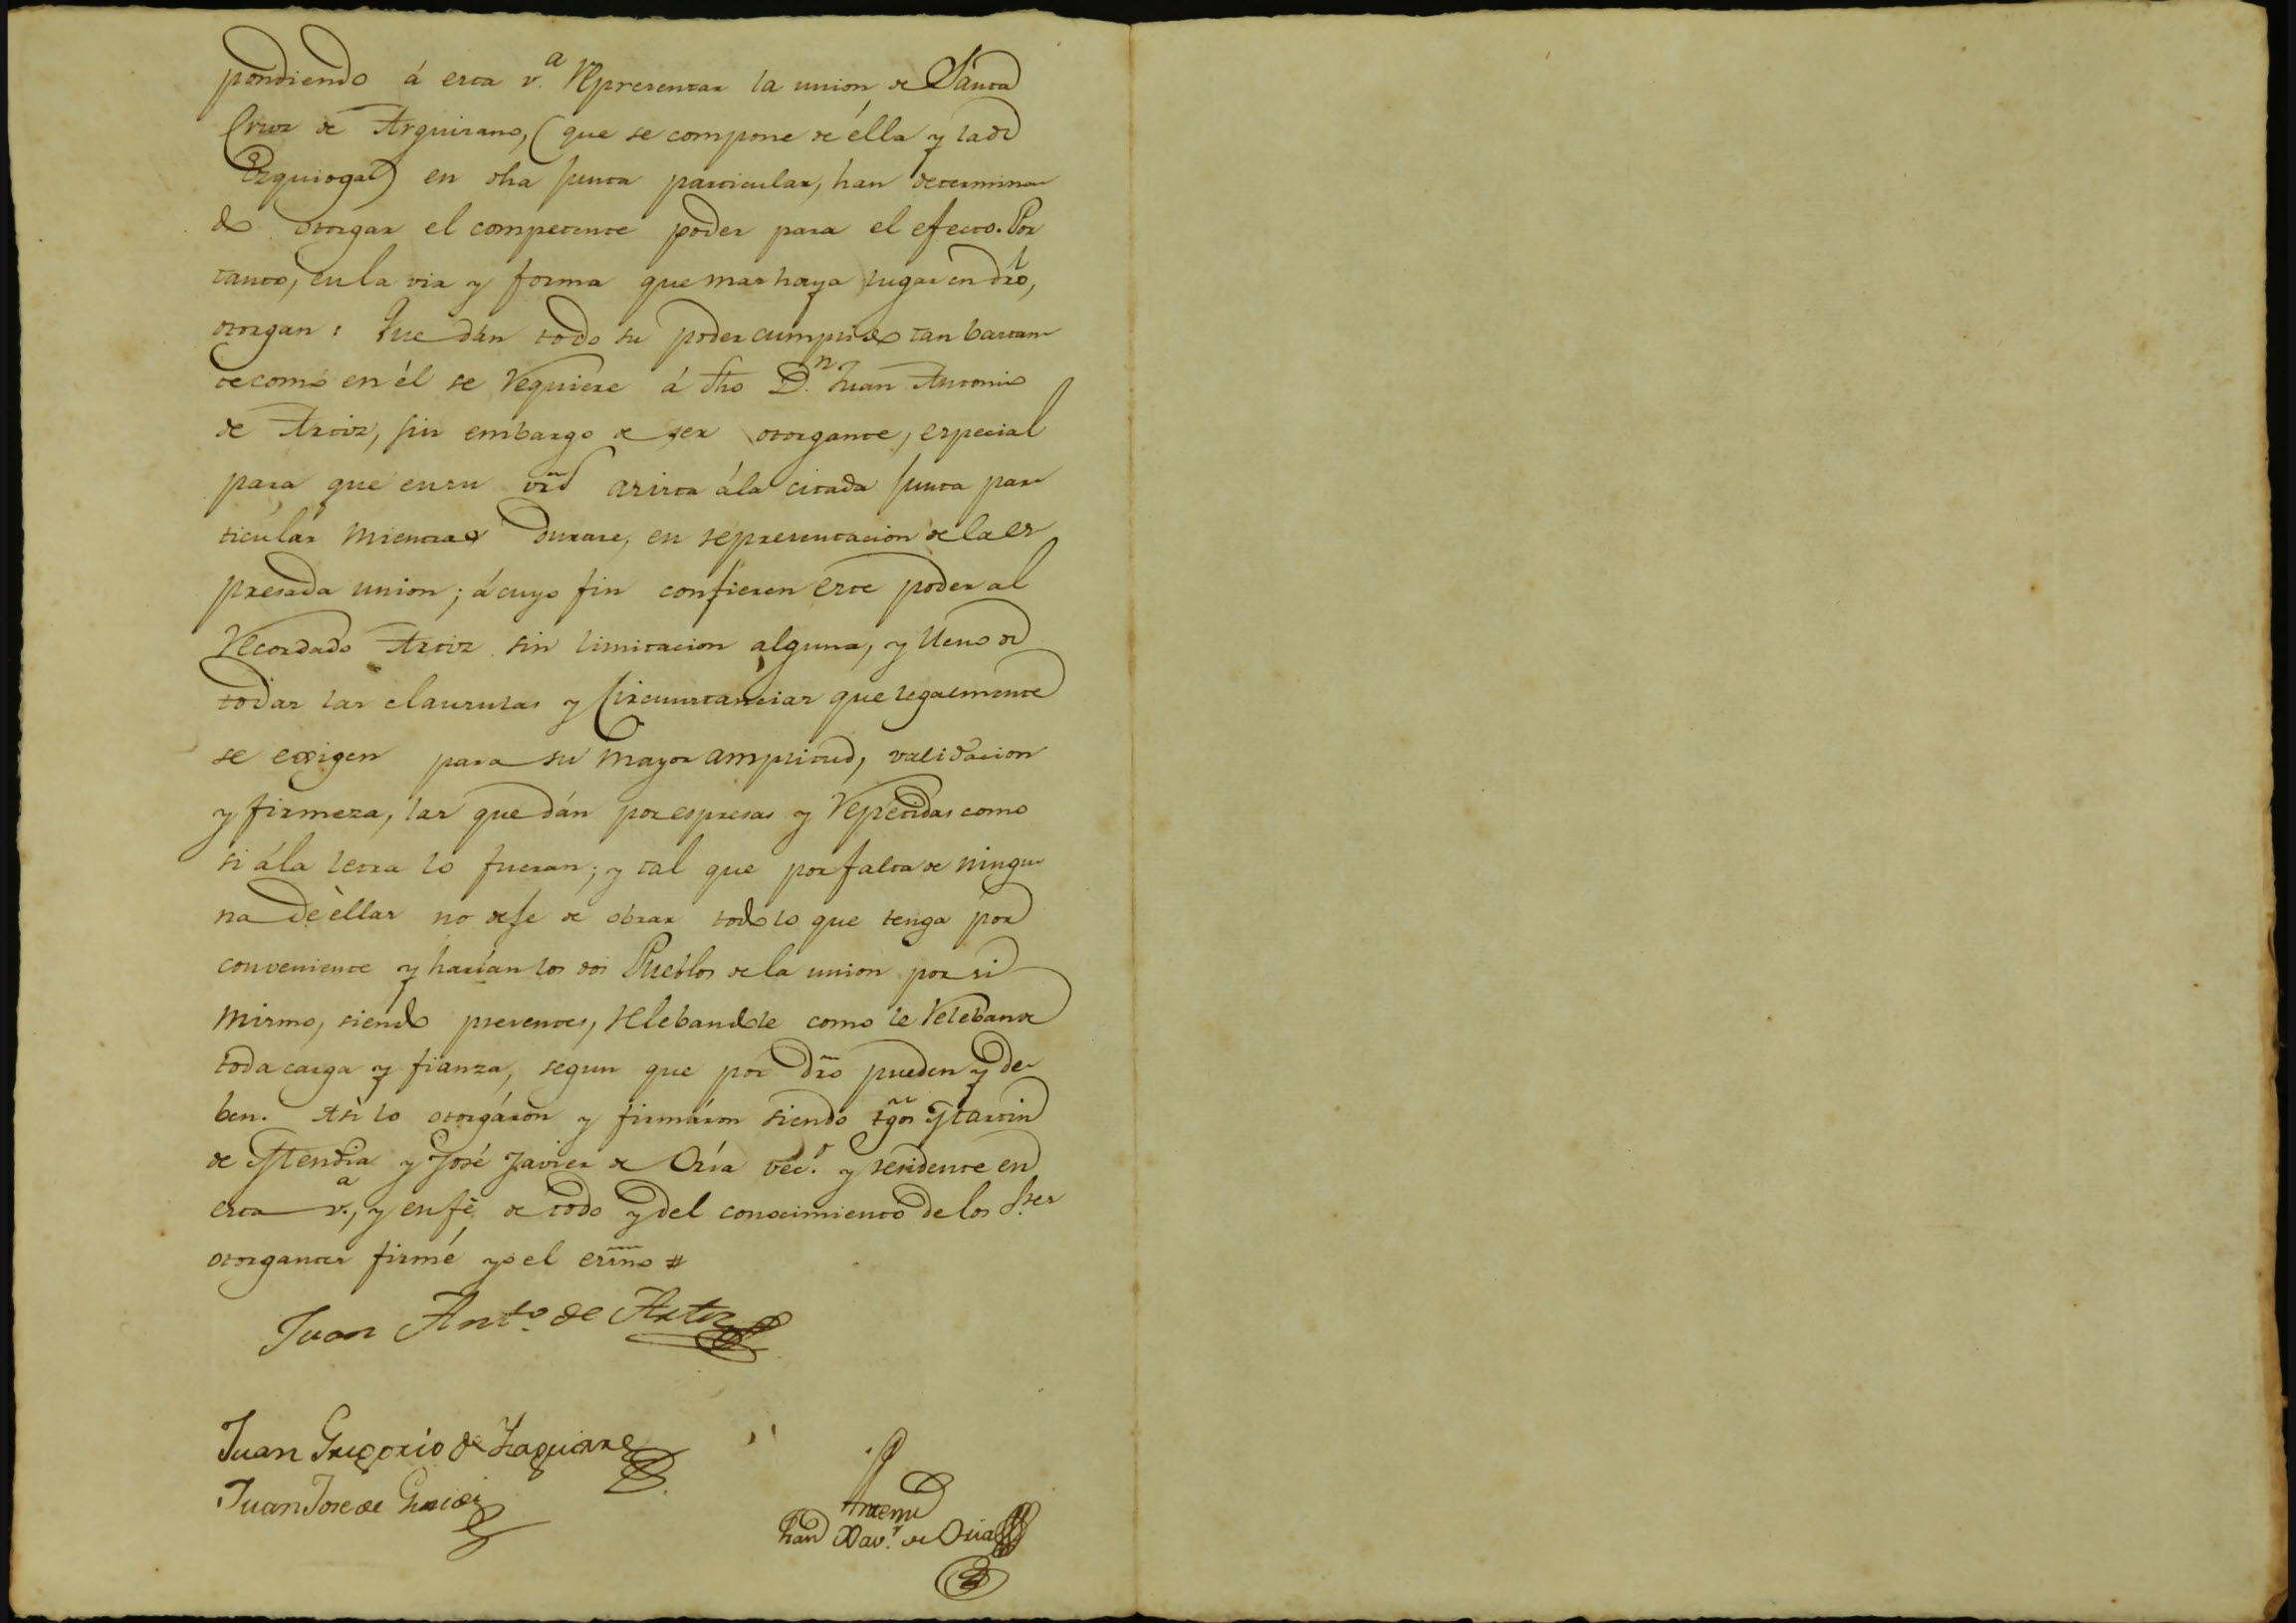 pondiendo á esta v.ª Representar la union de Santa
Cruz de Arguisano, (que se compone de élla y la de
Ezquioga) en dha Junta particular, han determina-
do otorgar el competente poder para el efecto. Por
tanto, en la via y forma que mas haya lugar en dro,
otorgan: Que dán todo su poder cumplido tan bastan-
te como en él se Requiere á dho D.n Juan Antonio
de Artiz, sin embargo de ser otorgante, especial
para que en su vrd asista á la citada Junta par-
ticular mientras durare, en representacion de la es-
presada union; á cuyo fin confieren este poder al
Recordado Artiz sin limitacion alguna, y lleno de
todas las clausulas y Circunstancias que legalmente
se exigen para su mayor amplitud, validacion
y firmeza, las que dán por espresas y Repetidas como
si á la letra lo fueran; y tal que por falta de ningu-
na de éllas no deje de obrar todo lo que tenga por
conveniente y harían los dos Pueblos de la union por si
mismo, siendo presentes, relebandole como le Releban de
toda carga y fianza, segun que por dro pueden y de-
ben. Asi lo otorgáron y firmáron siendo tgos Martin
de Mendia y José Javier de Oría vec.º y residente en
esta v.ª, y en fé de todo y del conocimiento de los S.res
otorgantes firmé yo el esno #
Juan Ant.o de Artiz
Juan Gregorio de Izaguirre
Juan Jose de
Antemi
Xav.r de Oria